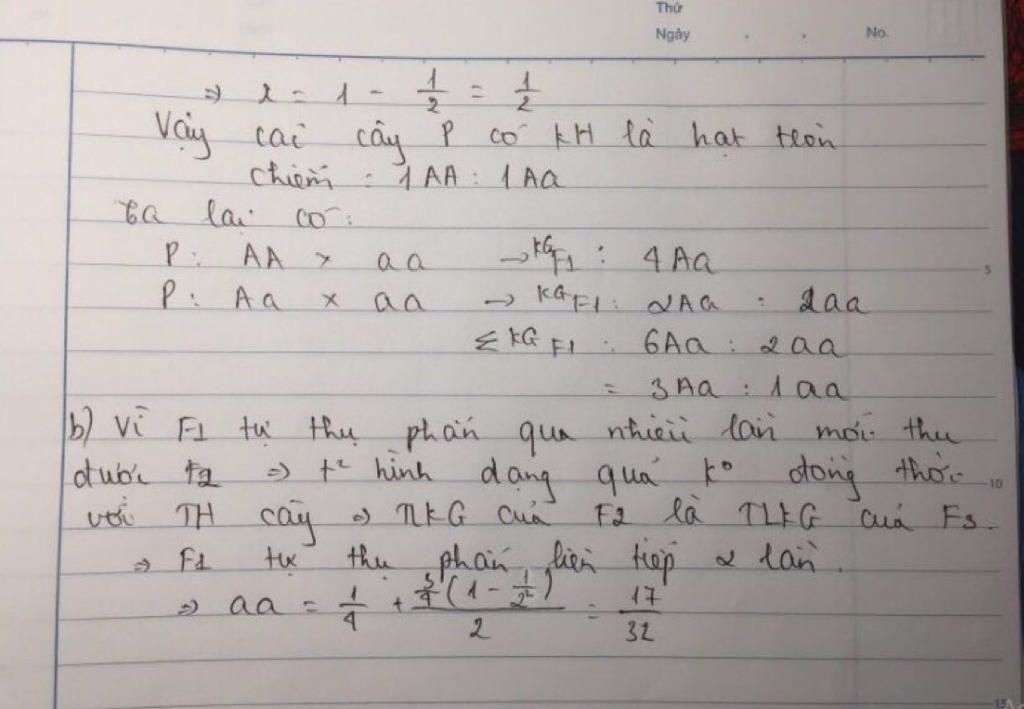 Thứ
Ngày . . No.
=> x = 1 - 1/2 = 1/2
Vậy các cây P có KH là hạt tròn
chiếm : 1AA : 1Aa
Ta lại có:
P: AA x aa → KG F1 : 4Aa
5
P: Aa x aa → KG F1 : 2Aa : 2aa
Σ KG F1 : 6Aa : 2aa
= 3Aa : 1aa
b) Vì F1 tự thụ phấn qua nhiều lần mới thu
được F2 => t² hình dạng quả k° đồng thời
10
với TH cây => TLKG của F2 là TLKG của F3.
=> F1 tự thụ phấn liên tiếp 2 lần.
=> aa = 1/4 + (3/4(1 - 1/2²))/2 = 17/32
15